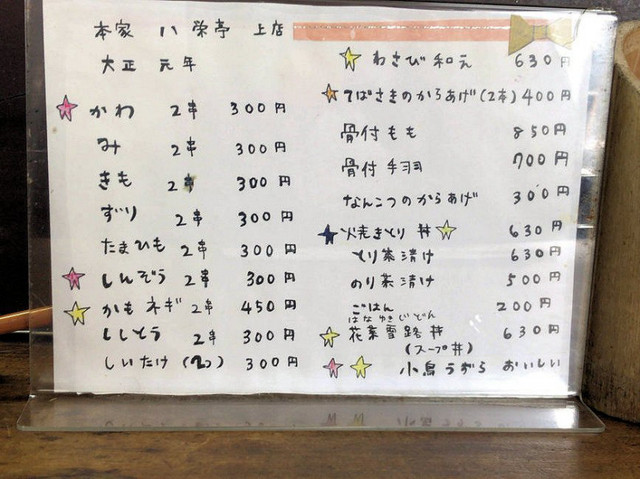 本家 八 栄亭 上店
大正 元年
かわ 2串 300円
み 2串 300円
きも 2串 300円
ずり 2串 300円
たまひも 2串 300円
しんぞう 2串 300円
かもネギ 2串 450円
ししとう 2串 300円
しいたけ (2つ) 300円
わさび和え 630円
てばさきのからあげ(2本) 400円
骨付もも 850円
骨付手羽 700円
なんこつのからあげ 300円
焼きとり丼 630円
とり茶漬け 630円
のり茶漬け 500円
ごはん 200円
はなゆきじどん
花菜雪路丼 630円
(スープ丼)
小鳥うずら おいしい